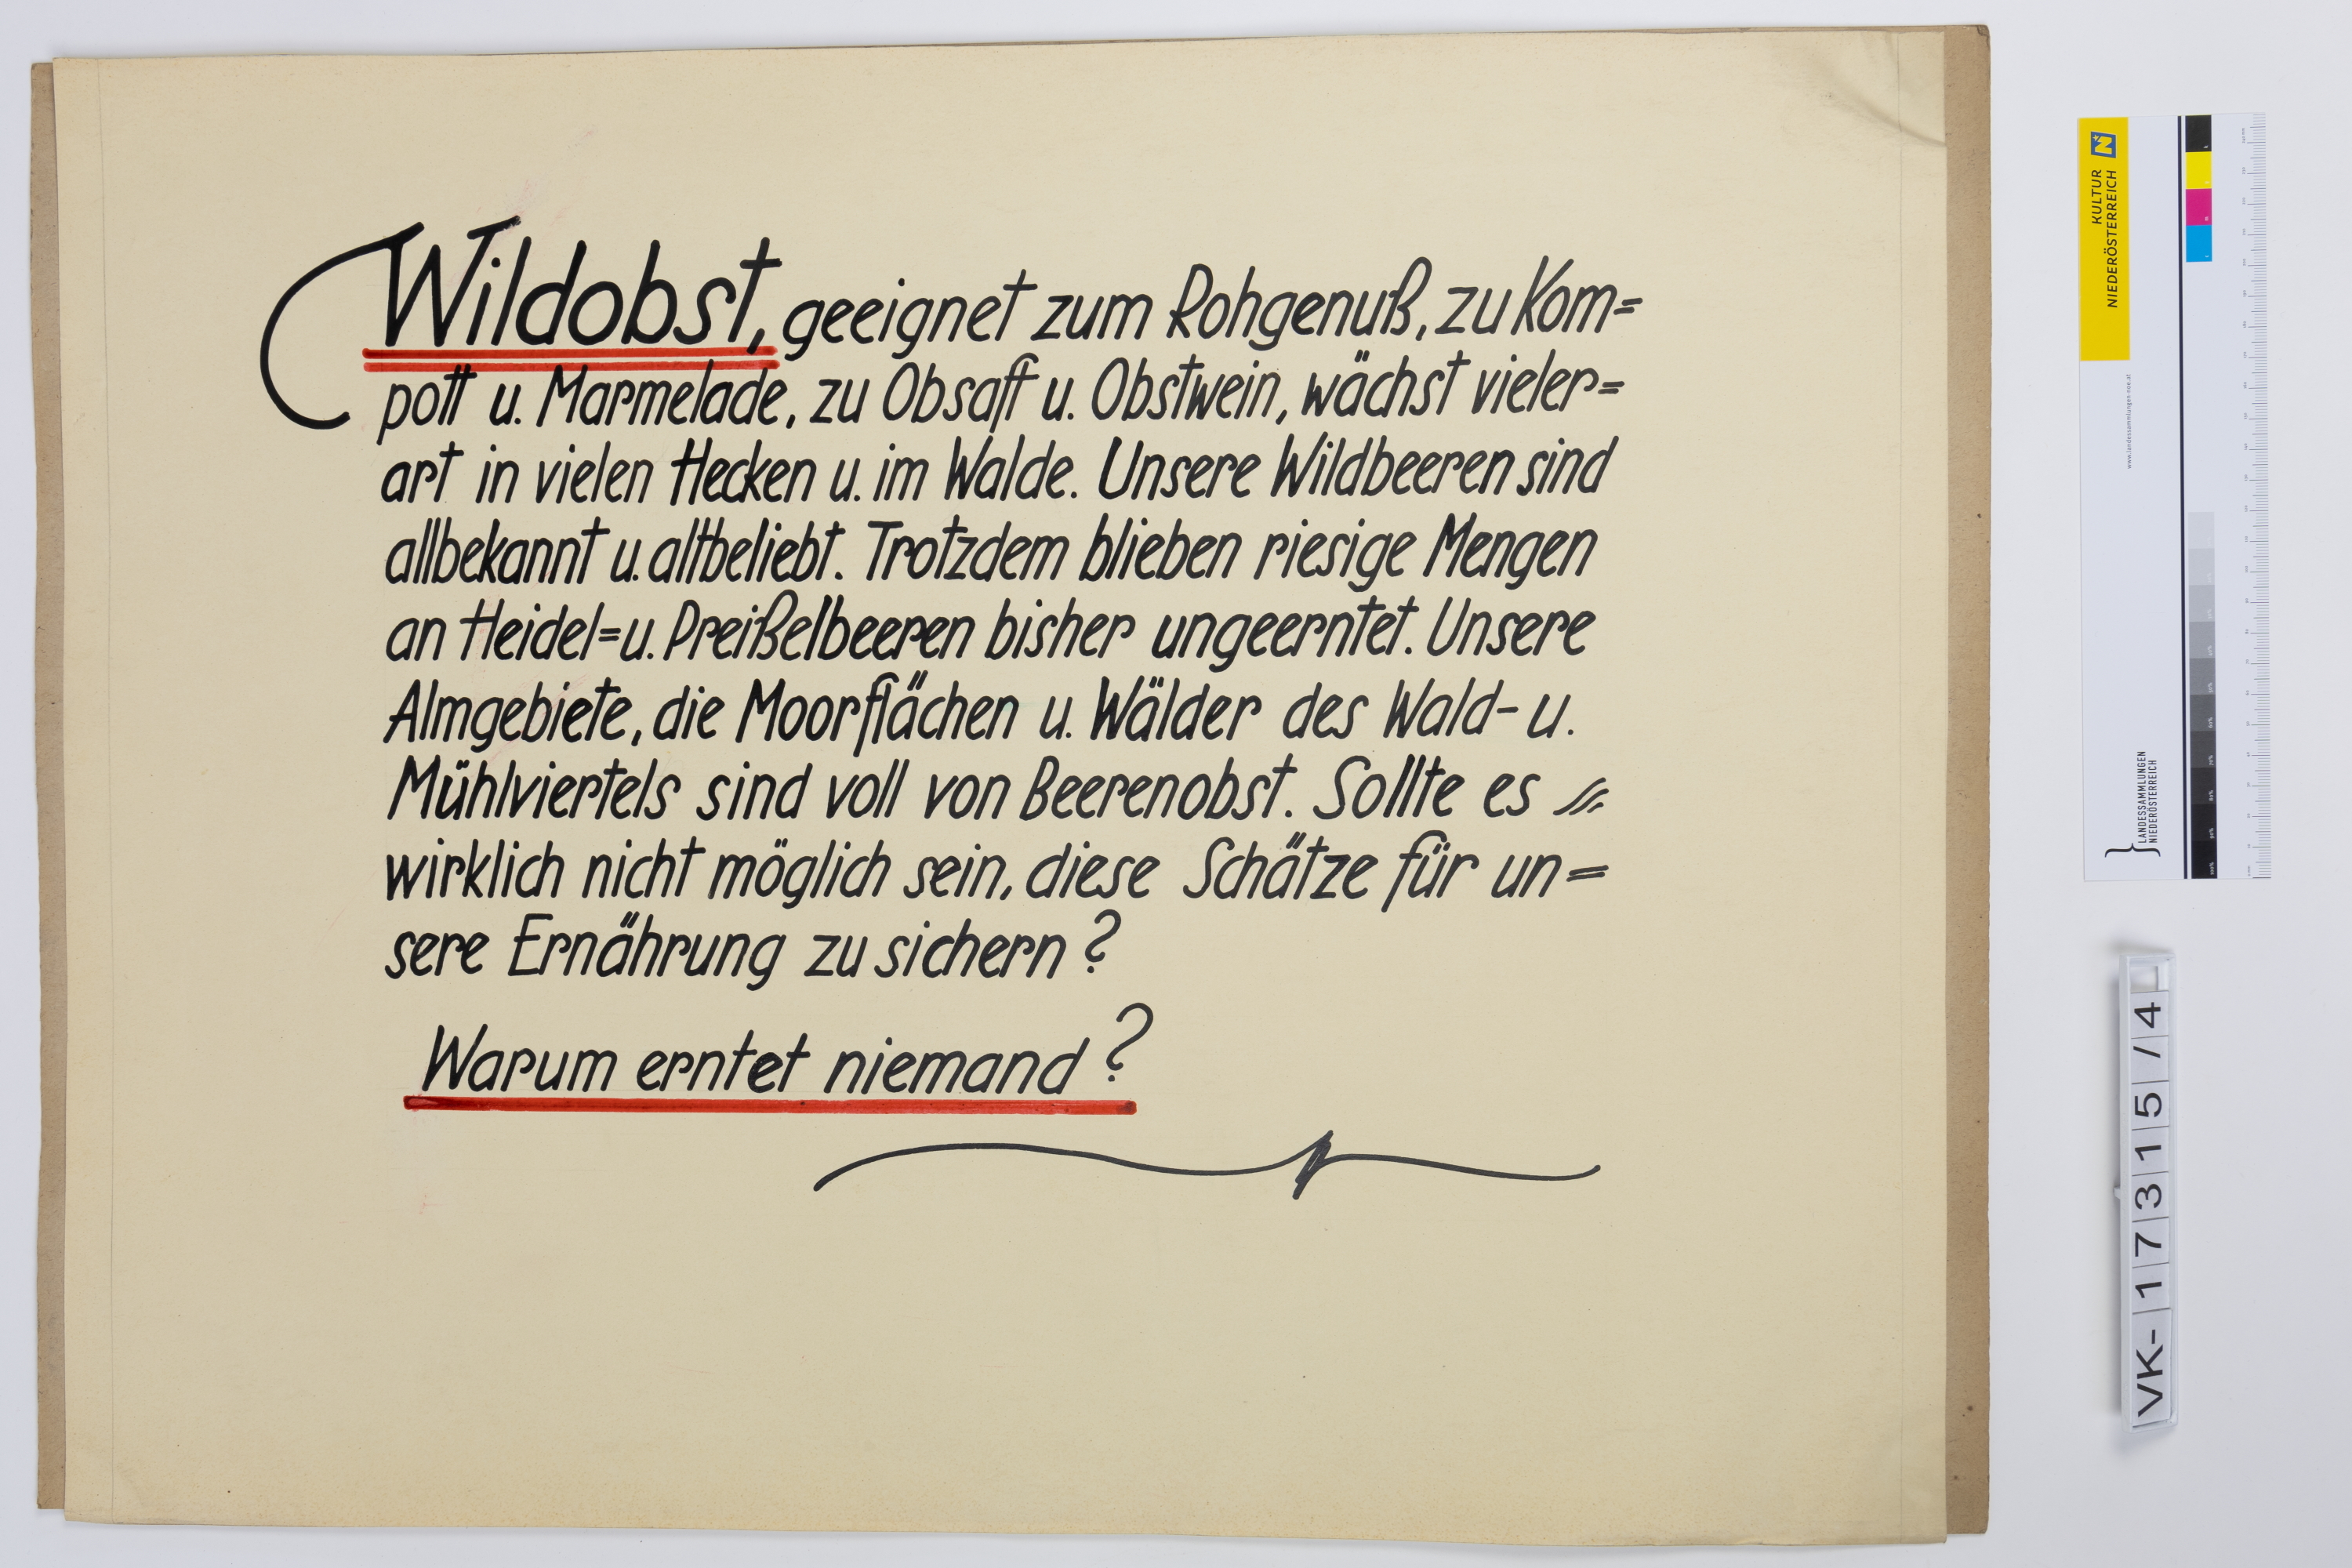 Wildobst, geeignet zum Rohgenuß, zu Kom=
pott u. Marmelade, zu Obsaft u. Obstwein, wächst vieler=
art in vielen Hecken u. im Walde. Unsere Wildbeeren sind
allbekannt u. altbeliebt. Trotzdem blieben riesige Mengen
an Heidel= u. Preißelbeeren bisher ungeerntet. Unsere
Almgebiete, die Moorflächen u. Wälder des Wald- u.
Mühlviertels sind voll von Beerenobst. Sollte es
wirklich nicht möglich sein, diese Schätze für un=
sere Ernährung zu sichern?
Warum erntet niemand?
KULTUR
NIEDERÖSTERREICH
www.landessammlungen-noe.at
LANDESSAMMLUNGEN
NIEDERÖSTERREICH
VK-17315/4